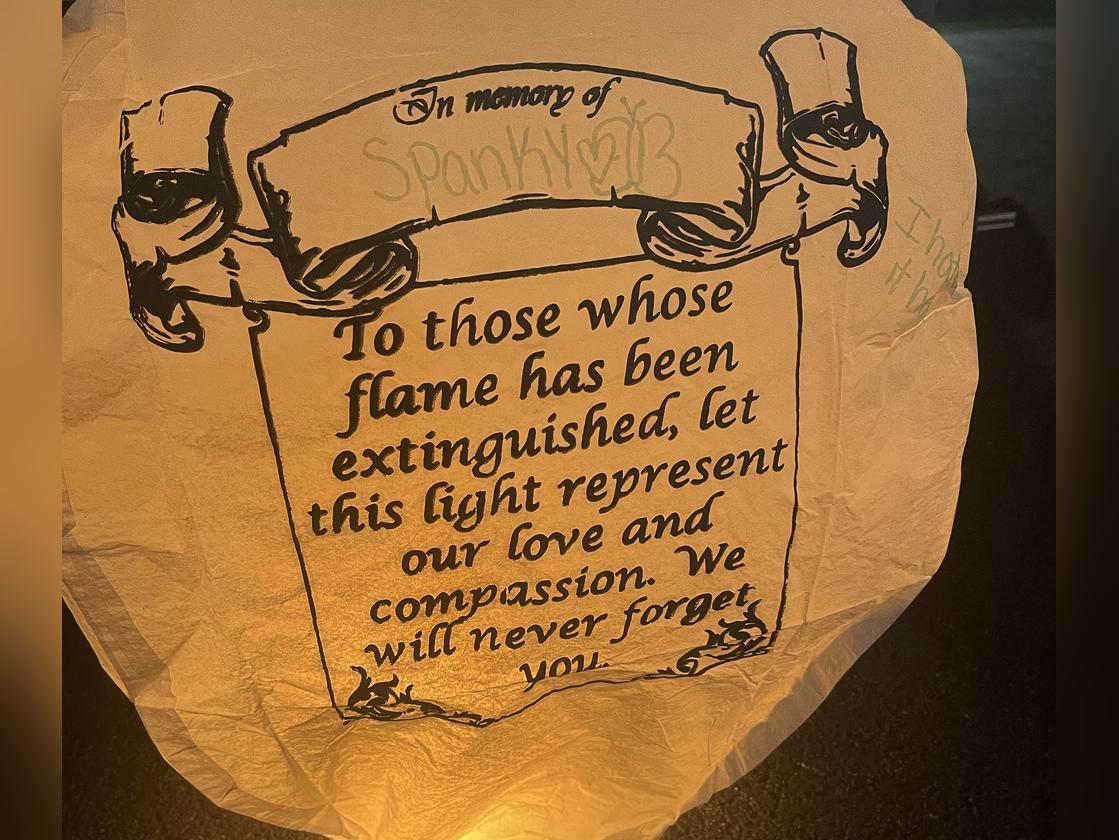 In memory of
Spanky
To those whose
flame has been
extinguished, let
this light represent
our love and
compassion. We
will never forget
you.
I
it